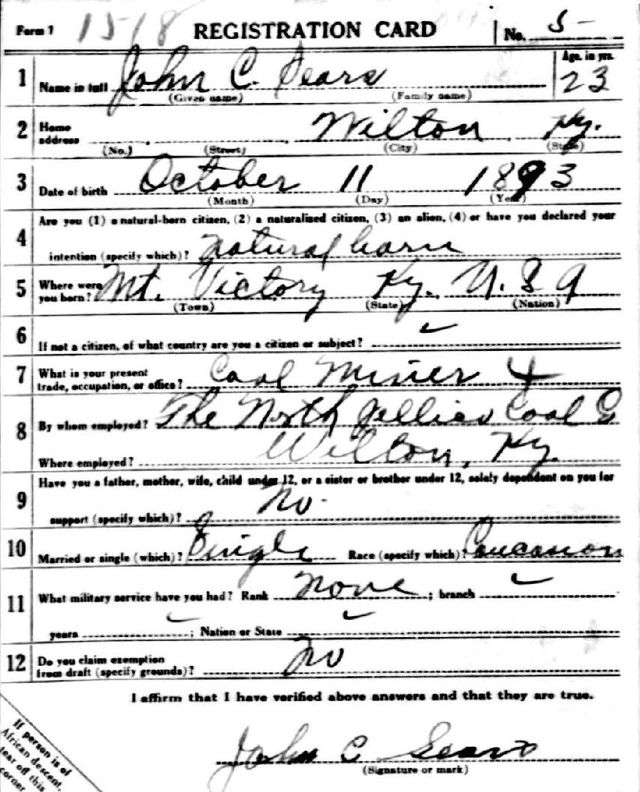 Form 1 1518 REGISTRATION CARD No. 5-
1 Name in full John C. Sears Age, in yrs. 23
(Given name) (Family name)
2 Home address Wilton Ky.
(No.) (Street) (City) (State)
3 Date of birth October 11 1893
(Month) (Day) (Year)
4 Are you (1) a natural-born citizen, (2) a naturalized citizen, (3) an alien, (4) or have you declared your
intention (specify which)? natural born
5 Where were you born? Mt. Victory Ky. U.S A
(Town) (State) (Nation)
6 If not a citizen, of what country are you a citizen or subject?
7 What is your present trade, occupation, or office? Coal Miner
8 By whom employed? The North Jellico Coal Co
Where employed? Wilton, Ky.
9 Have you a father, mother, wife, child under 12, or a sister or brother under 12, solely dependent on you for
support (specify which)? No.
10 Married or single (which)? Single Race (specify which)? Caucasion
11 What military service have you had? Rank None ; branch
years ; Nation or State
12 Do you claim exemption from draft (specify grounds)? No
I affirm that I have verified above answers and that they are true.
John C Sears
(Signature or mark)
If person is of
African descent,
tear off this
corner.